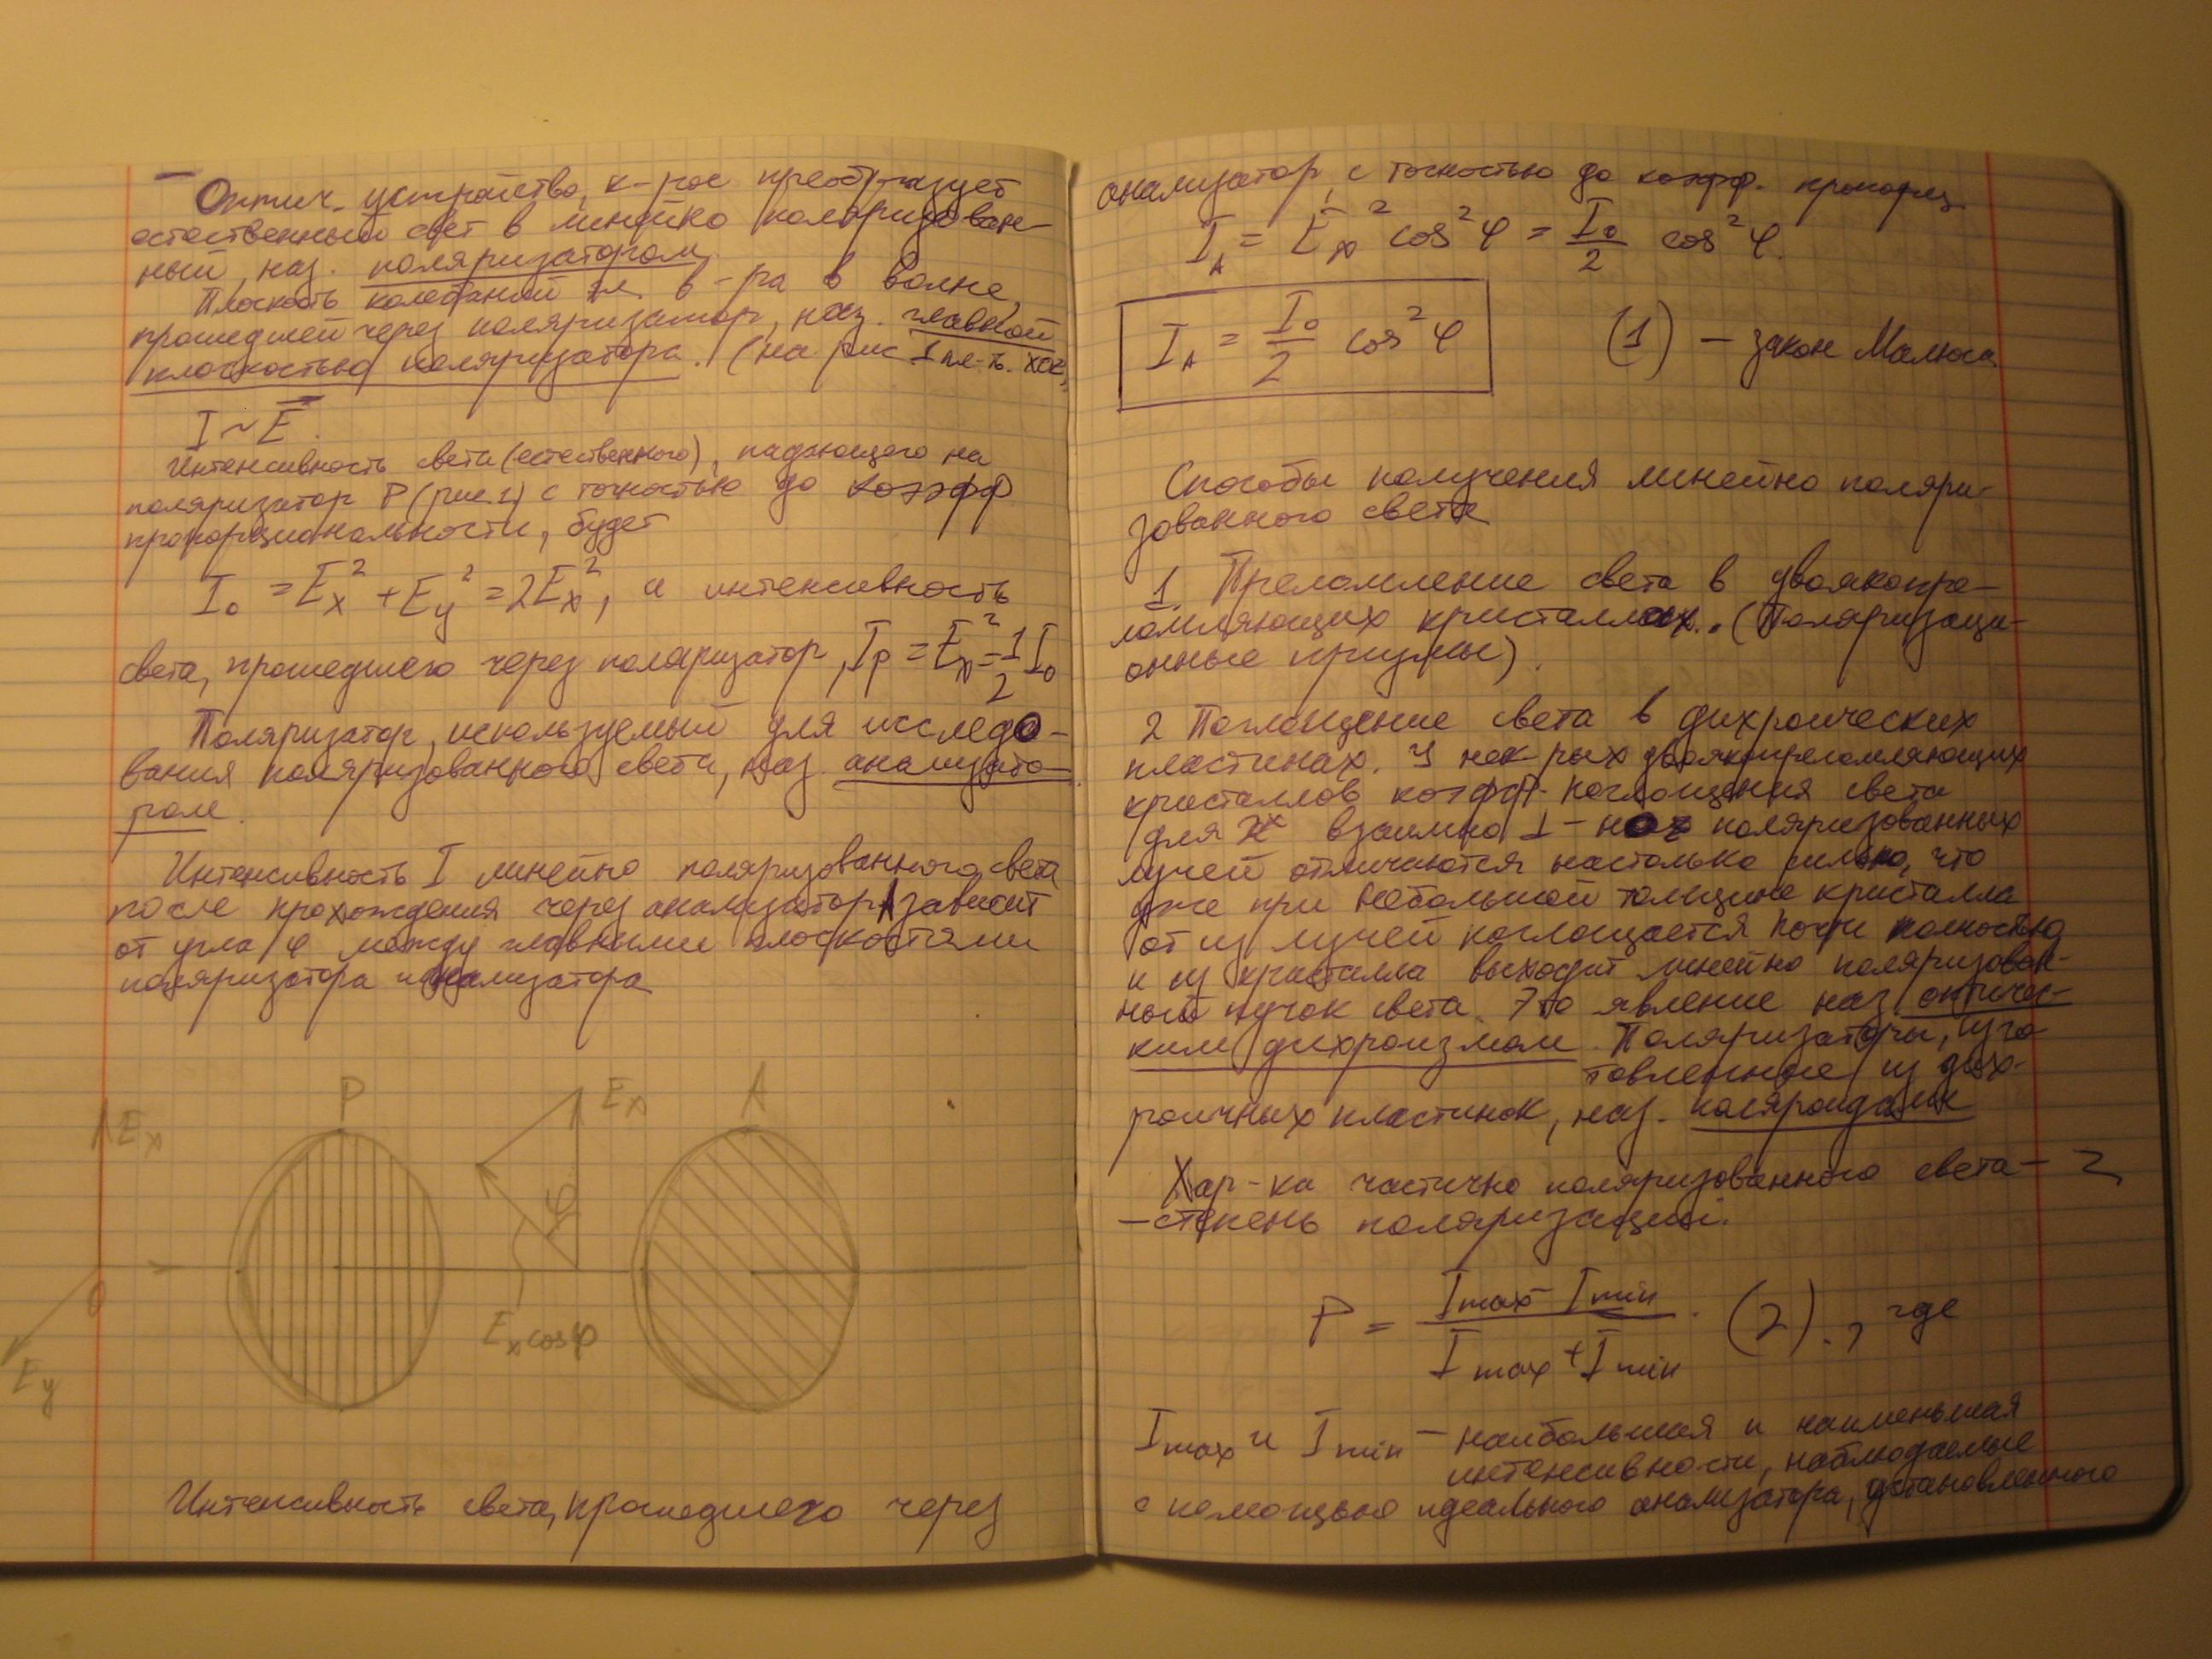 Оптич. устройство, к-рое преобразует
естественный свет в линейно поляризован-
ный, наз. поляризатором.
Плоскость колебаний эл. в-ра в волне,
прошедшей через поляризатор, наз. главной
плоскостью поляризатора. (на рис 1 пл-ть
I ~ E
Интенсивность света (естественного), падающего на
поляризатор P (рис.1) с точностью до коэфф
пропорциональности, будет
I₀ = Eₓ² + E_y² = 2Eₓ², а интенсивность
света, прошедшего через поляризатор, I_P = Eₓ² = 1/2 I₀
Поляризатор, используемый для исследо-
вания поляризованного света, наз. анализато-
ром.
Интенсивность I линейно поляризованного света
после прохождения через анализатор A зависит
от угла φ между главными плоскостями
поляризатора и анализатора
P
Eₓ
A
Eₓ
φ
0
Eₓ cosφ
E_y
Интенсивность света, прошедшего через
анализатор, с точностью до коэфф. пропорц
I_A = Eₓ² cos²φ = I₀/2 cos²φ.
I_A = I₀/2 cos²φ (1) – закон Малюса
Способы получения линейно поляри-
зованного света
1. Преломление света в двоякопре-
ломляющих кристаллах. (Поляризаци-
онные призмы).
2 Поглощение света в дихроических
пластинах. У нек рых двоякопреломляющих
кристаллов коэфф. поглощения света
для взаимно ⊥-но поляризованных
лучей отличаются настолько сильно, что
дже при небольшой толщине кристалла
из лучей поглощается почти полностью
и из кристалла выходит линейно поляризован-
ный пучок света. Это явление наз оптичес-
ким дихроизмом. Поляризаторы, изго
товленные из дих-
роичных пластинок, наз. поляроидами
Хар-ка частично поляризованного света –
– степень поляризации.
P = (Imax - Imin)/(Imax + Imin). (2)., где
Imax и Imin – наибольшая и наименьшая
интенсивности, наблюдаемые
с помощью идеального анализатора, установленного